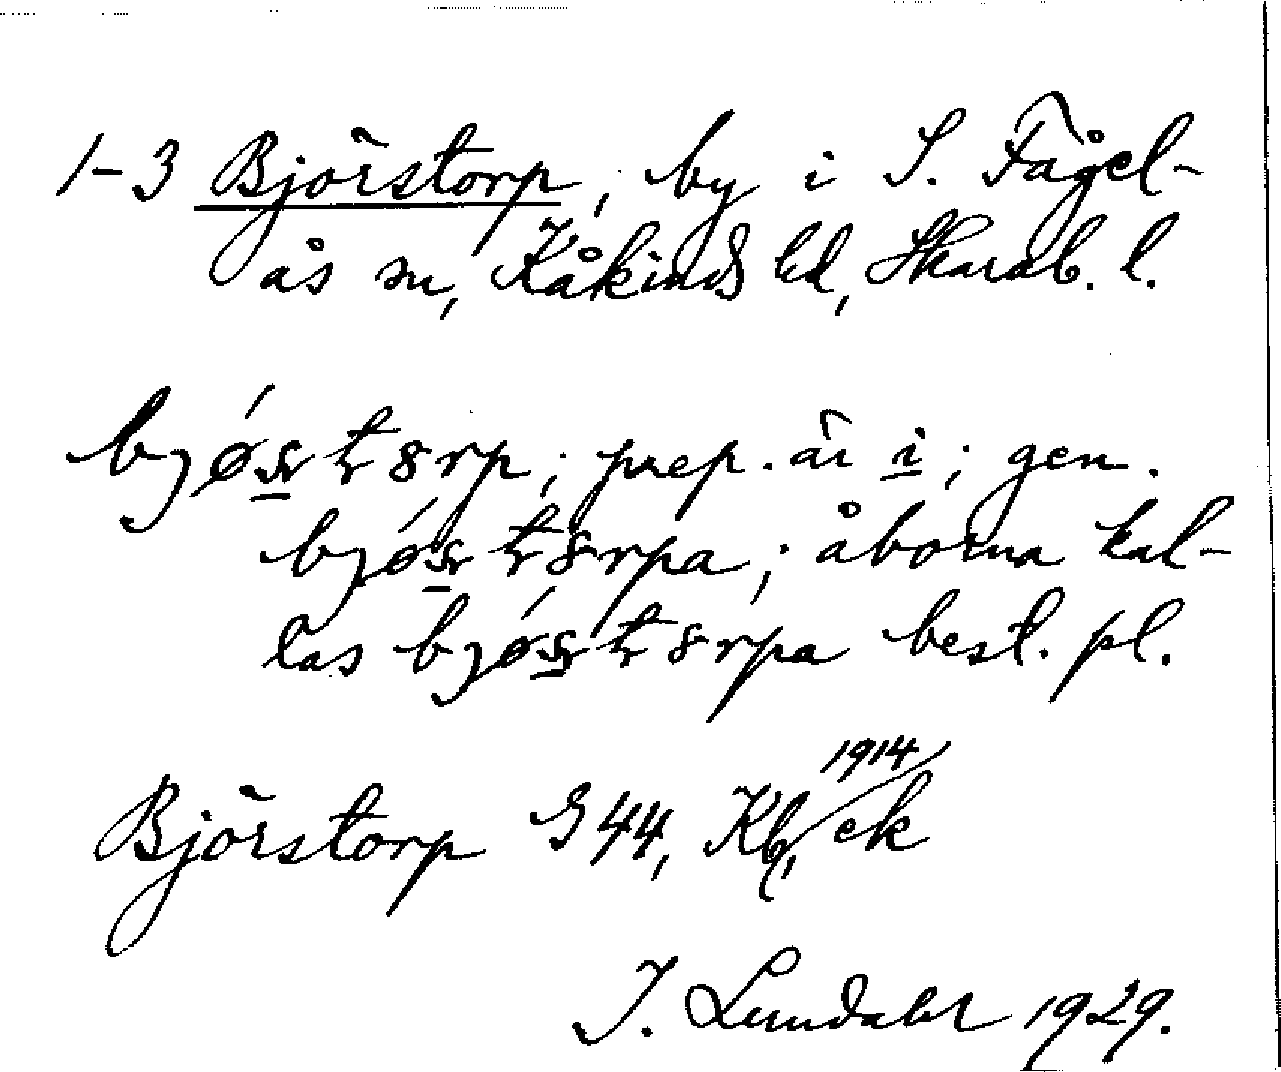 1-3 Björstorp, by i S. Fågel-
ås sn, Kåkinds hd, Skarab. l.
bjǿstrp; prep. är i; gen.
bjǿstrpa; åborna kal-
las bjǿstrpa best. pl.
Björstorp G44, Kb, ek 1914
I. Lundahl 1929.